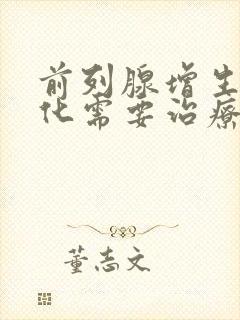 前列腺增生
化需要治療
董志文